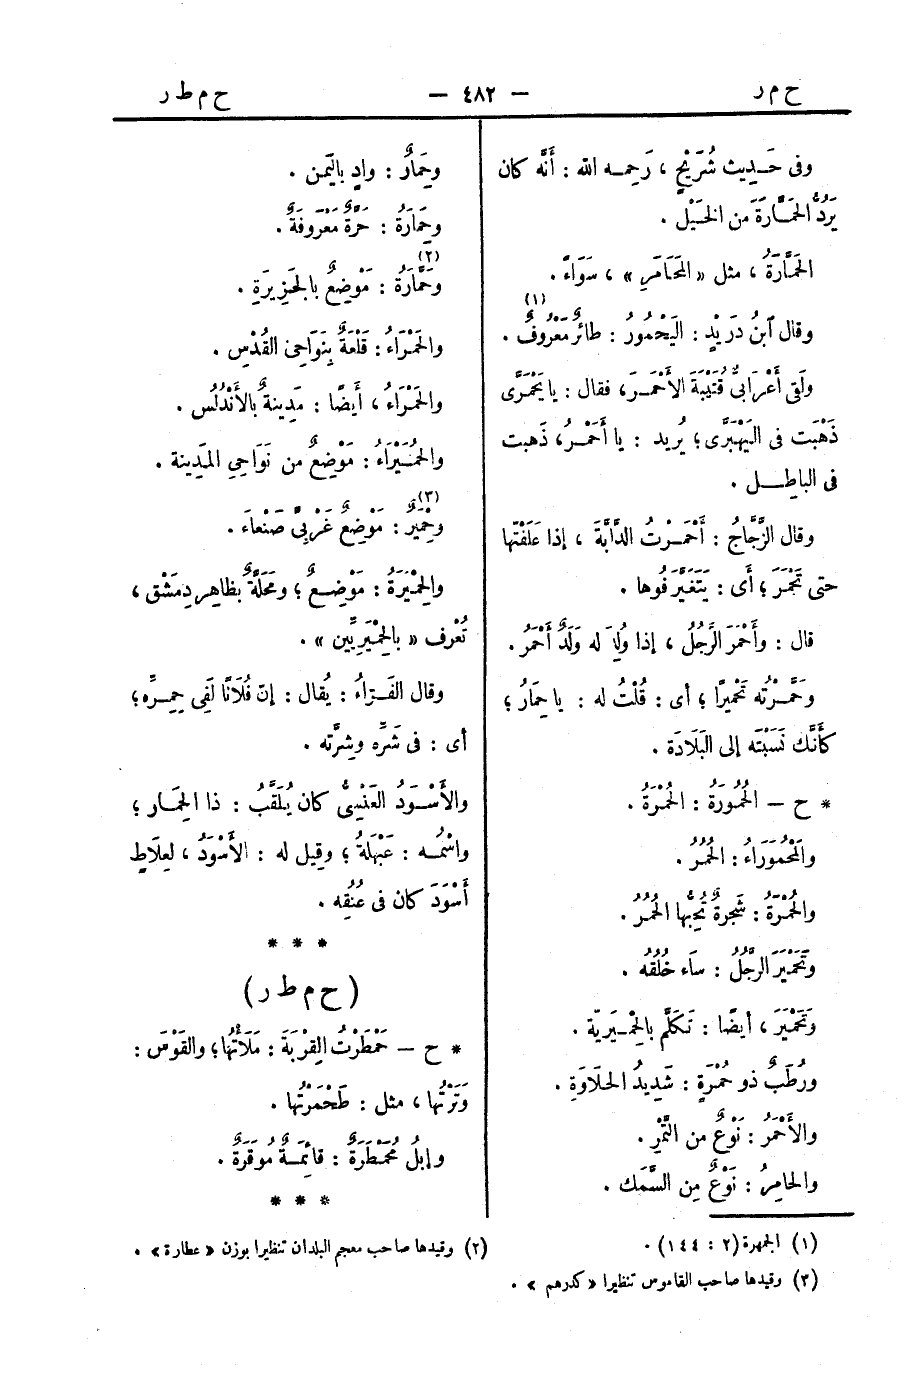 ح م ر — ٤٨٢ — ح م ط ر
وفى حَديث شُرَيْحٍ ، رَحِمه الله : أَنَّه كان
يَرُدُّ الحَمَّارَةَ من الخَيْل .
الحَمَّارَةُ ، مثل « المَحَامَرِ » ، سَوَاءٌ .
وقال ٱبنُ دُرَيْدٍ : اليَحْمُورُ : طائرٌ مَعْرُوفٌ (١) .
ولَقِى أَعْرَابىٌّ قُتَيْبَةَ الأَحْمَرَ ، فقال : يا يَحْمَرَّى
ذَهَبْتَ فى اليَهْبَرَّى ؛ يُريد : يا أَحْمَرُ ، ذَهبت
فى الباطِل .
وقال الزَّجَّاجُ : أَحْمَرْتُ الدَّابَّةَ ، إذا عَلَفْتَها
حتى تَحْمَرَ ؛ أَى : يَتَغَيَّرَ فُوها .
قال : وأَحْمَرَ الرَّجُلُ ، إذا وُلِدَ له وَلَدٌ أَحْمَرُ .
وحَمَّرْتُه تَحْميرًا ؛ أى : قُلْتُ له : يا حِمَارُ ؛
كأَنَّك نَسَبْتَه إلى البَلَادَة .
* ح — الحُمُورَةُ : الحُمْرَةُ .
والمَحْمُورَاءُ : الحُمُرُ .
والحُمْرَةُ : شَجَرةٌ تُحِبُّها الحُمُرُ .
وتَحَمْيَرَ الرَّجُلُ : سَاء خُلُقُه .
وتَحَمْيَرَ ، أيضًا : تَكَلَّم بالحِمْيَرِيّة .
ورُطَبٌ ذو حُمْرَةٍ : شَدِيدُ الحلَاوَةِ .
والأَحْمَرُ : نَوْعٌ من التَّمْرِ .
والحامِرُ : نَوْعٌ مِن السَّمَك .
وحِمَارٌ : وادٍ باليَمن .
وحِمَارَةُ : حَرَّةٌ مَعْرُوفَةٌ .
وحَمَّارَةُ (٢) : مَوْضِعٌ بالجَزِيرَةِ .
والحَمْرَاءُ : قَلْعَةٌ بِنَوَاحِى القُدْسِ .
والحَمْرَاءُ ، أيضًا : مَدِينَةٌ بالأَنْدَلُس .
والحُمَيْرَاءُ : مَوْضِعٌ من نَوَاحِي المَدِينَة .
وحِمْيَرٌ (٣) : مَوْضِعٌ غَرْبِىَّ صَنْعَاءَ .
والحِمْيَرَةُ : مَوْضِعٌ ؛ ومَحَلَّةٌ بظاهِر دِمَشْق ،
تُعْرَف « بالحِمْيَرِيِّين » .
وقال الفَرّاءُ : يُقال : إنّ فُلَانًا لَفِى حِمِرِّه ؛
أى : فى شَرِّه وشِرَّته .
والأَسْوَدُ العَنْسِىُّ كان يُلَقَّبُ : ذا الحِمَار ؛
واسْمُه : عَبْهَلَةُ ؛ وقيل له : الأَسْوَدُ ، لِعِلَاطٍ
أَسْوَدَ كان فى عُنُقِه .
* * *
( ح م ط ر )
* ح — حَمْطَرْتُ القِرْبَةَ : مَلَأْتُها ؛ والقَوْسَ :
وَتَرْتُها ، مثل : طَحْمَرْتُها .
وإبِلٌ مُحَمْطَرَةٌ : قائِمَةٌ مُوقَرَةٌ .
* * *
(١) الجمهرة ( ٢ : ١٤٤ ) .
(٢) وقيدها صاحب معجم البلدان تنظيرا بوزن « عطارة » .
(٣) وقيدها صاحب القاموس تنظيرا « كدرهم » .